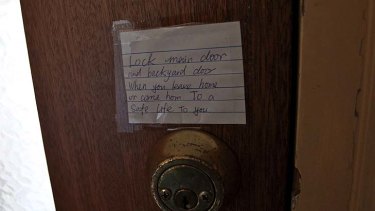 Lock main door
and backyard door
when you leave home
or come hom To a
Safe Life To you